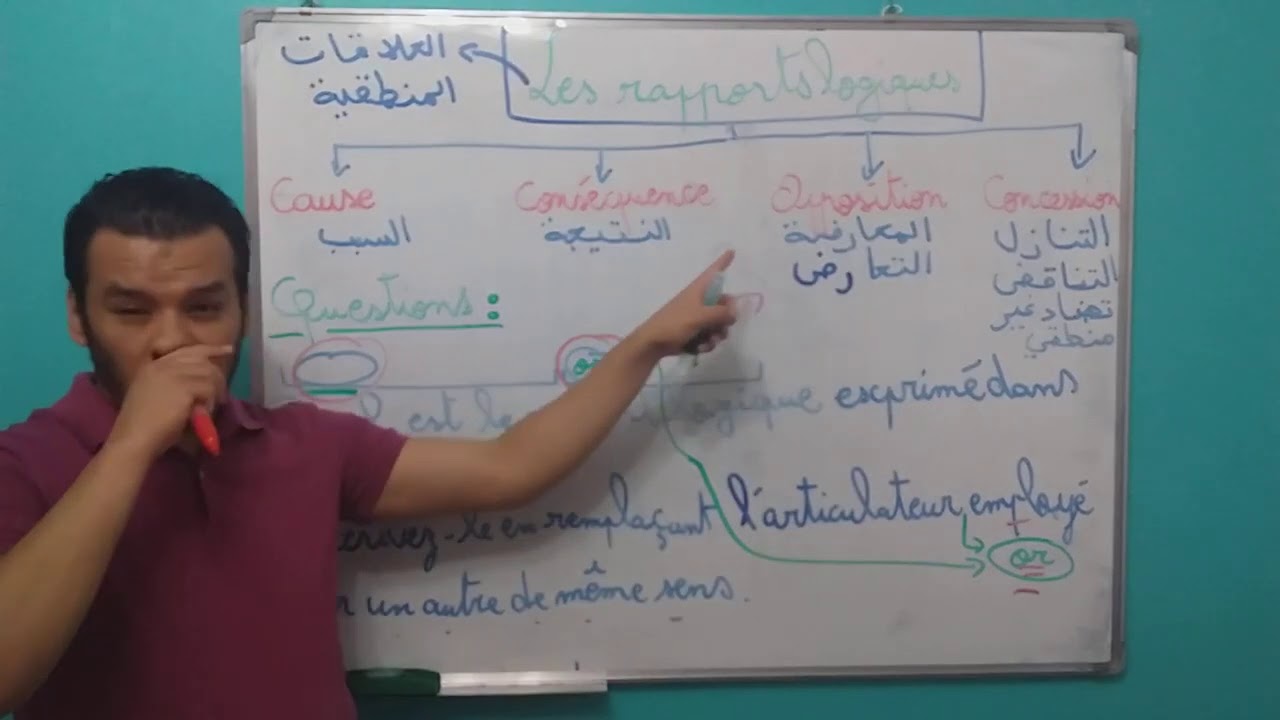 العلاقات
المنطقية
Les rapports logiques
Cause
Conséquence
Opposition
Concession
السبب
النتيجة
المعارضة
التعارض
التنازل
التناقض
تضاد غير
منطقي
Questions :
or
est le logique exprimé dans
écrivez-le en remplaçant l'articulateur employé
or
un autre de même sens.